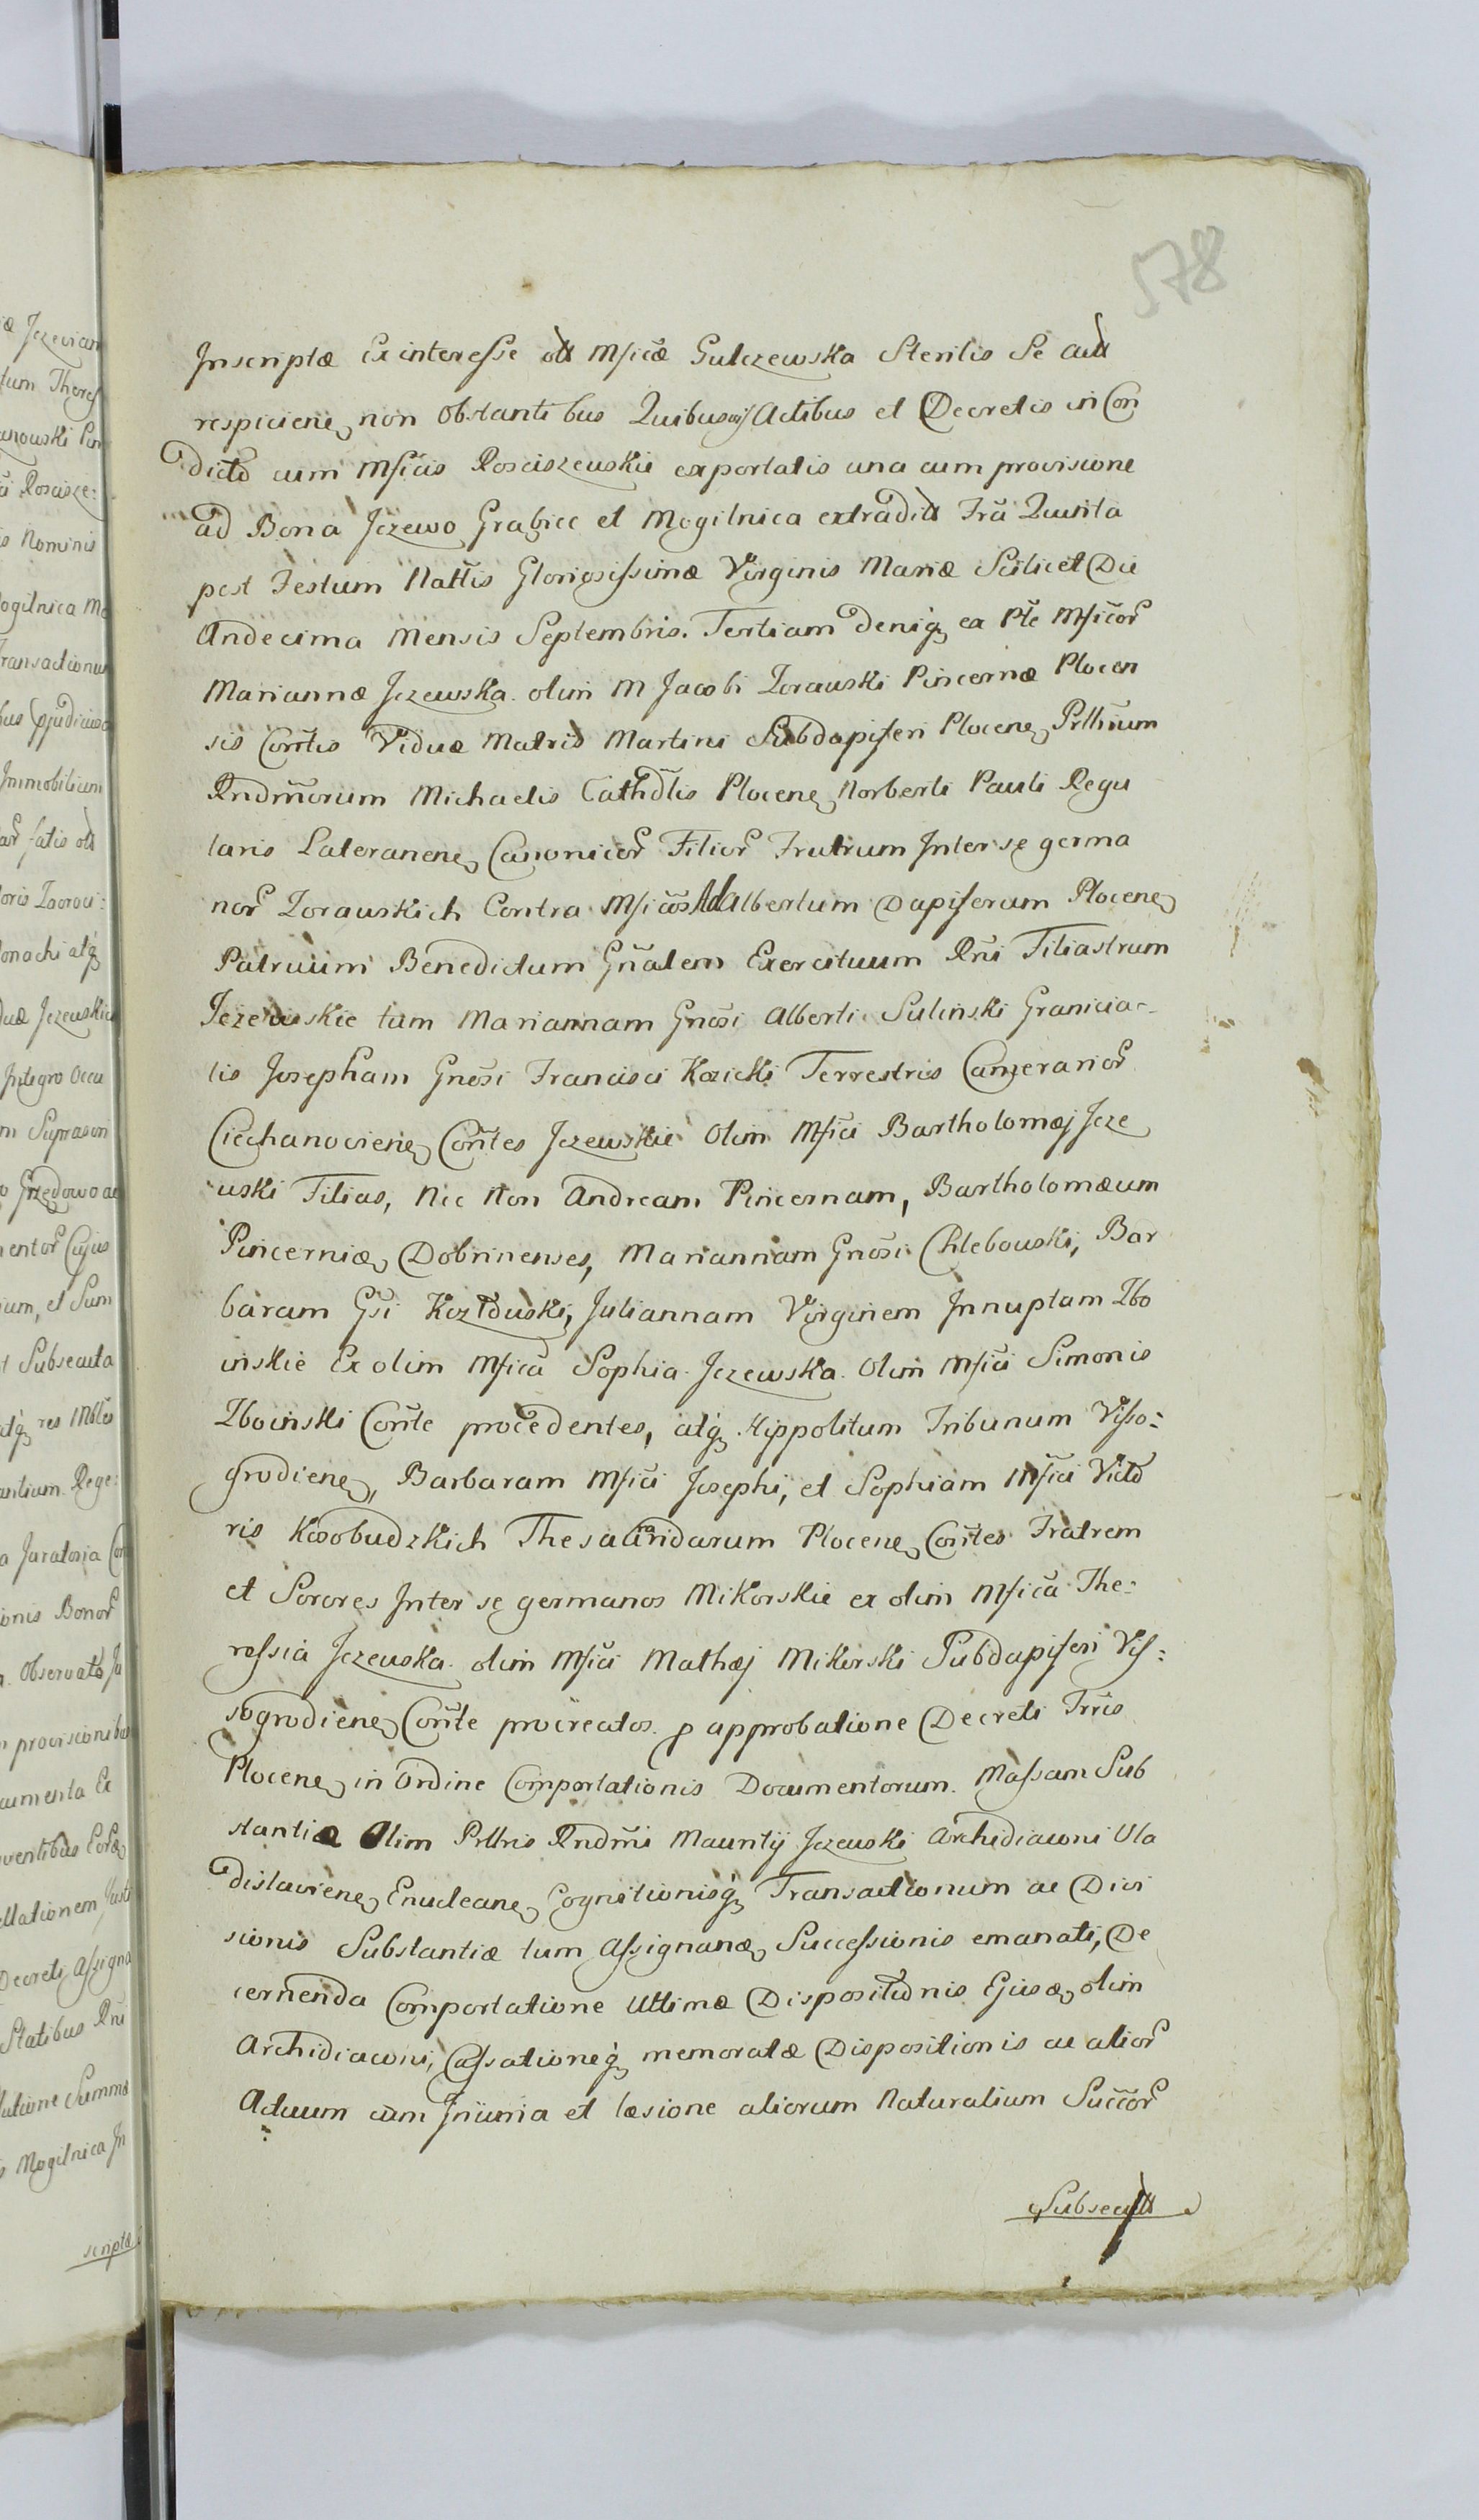 578
Inscriptæ Ex interesse olt Mficæ Gulczewska Sterilis Se
respiciene, non Obstantibus Quibusvis Actibus et Decretis in Con
dicto cum Mficis Rosciszewskie exportatis una cum provisione
ad Bona Jezewo Grabiec et Mogilnica Fra Quinta
post Festum Nattis Gloriosissimæ Virginis Mariæ Scilicet Die
Undecima Mensis Septembris. Tertiam deniq, ex Pte Mficor
Mariannæ Jezewska olim M Jacobi Zorawski Pincernæ Plocen
sis Contis Viduæ Matris Martini Subdapiferi Plocene, Prllrium
Rndmorum Michaelis Cathdlis Plocene, Norberti Pauli Regu
laris Lateranene, Canonicor Filior Fratrum Inter se germa
nor Zorawskich Contra Mficos Adalbertum Dapiferum Plocene,
Patruum Benedictum Gnalem Exercituum Rni Filiastrum
Jezewskie tum Mariannam Gnosi Alberti Sulinski Granicia-
lis Josepham Gnosi Francisci Kozicki Terrestris Camerarior
Ciechanoviene, Contes Jezewskie Olim Mfici Bartholomæj Jeze
wski Filias, Nec Non Andream Pincernam, Bartholomæum
Pincernia, Dobrinenses, Mariannam Gnosi Chlebowski, Bar
baram Gsi Kozłowski, Juliannam Virginem Innuptam Zbo
inskie Ex olim Mfica Sophia Jezewska Olim Mfici Simonis
Zboinski Conte procedentes, atq, Hippolitum Tribunum Visso:
grodiene, Barbaram Mfici Josephi, et Sophiam Mfici Victo
ris Kosobudzkich Plocene, Contes Fratrem
et Sorores Inter se germanos Mikorskie ex olim Mfica The:
ressia Jezewska olim Mfici Mathæj Mikorski Subdapiferi Vis:
sogrodiene, Conte procreatos p approbatione Decreti Trris
Plocene, in Ordine Comportationis Documentorum Massam Sub
stantiæ Olim Prllris Rndmi Mauritij Jezewski Archidiaconi Vla
dislaviene, Enucleane, Cognitionisq, Transactionum ac Divi
sionis Substantiæ tum Assignanæ, Successionis emanati, De
cernenda Comportatione Ultimæ Dispositionis Ejusæ, olim
Archidiaconi, Cassationeq, memoratæ Dispositionis ac alior
Actuum cum Injuria et læsione aliorum Naturalium Succor